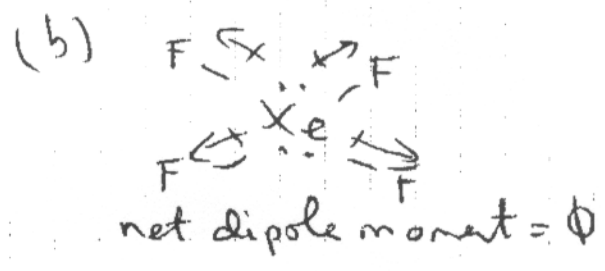 (b)
F F
Xe
F F
net dipole moment = ϕ